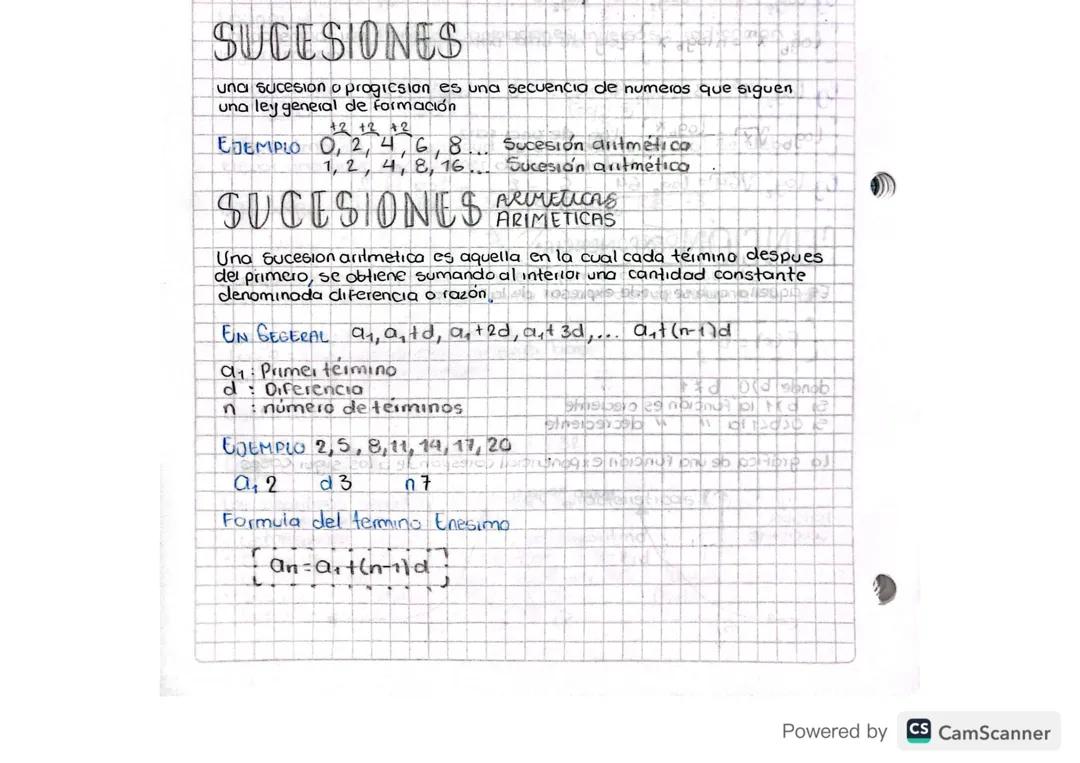 SUCESIONES
una sucesion o progresion es una secuencia de numeros que siguen
una ley general de formación
+2 +2 +2
EJEMPLO 0, 2, 4, 6, 8... Sucesión aritmética
1, 2, 4, 8, 16... Sucesión aritmética
SUCESIONES ARIMETICAS
ARIMETICAS
Una sucesion aritmetica es aquella en la cual cada término despues
del primero, se obtiene sumando al interior una cantidad constante
denominada diferencia o razón.
EN GEGERAL a₁, a₁+d, a₁+2d, a₁+3d,... a₁+(n-1)d
a₁: Primer término
d : Diferencia
n : número de términos
EJEMPLO 2, 5, 8, 11, 14, 17, 20
a₁ 2 d 3 n 7
Formula del termino Enesimo
an=a₁+(n-1)d
Powered by CS CamScanner